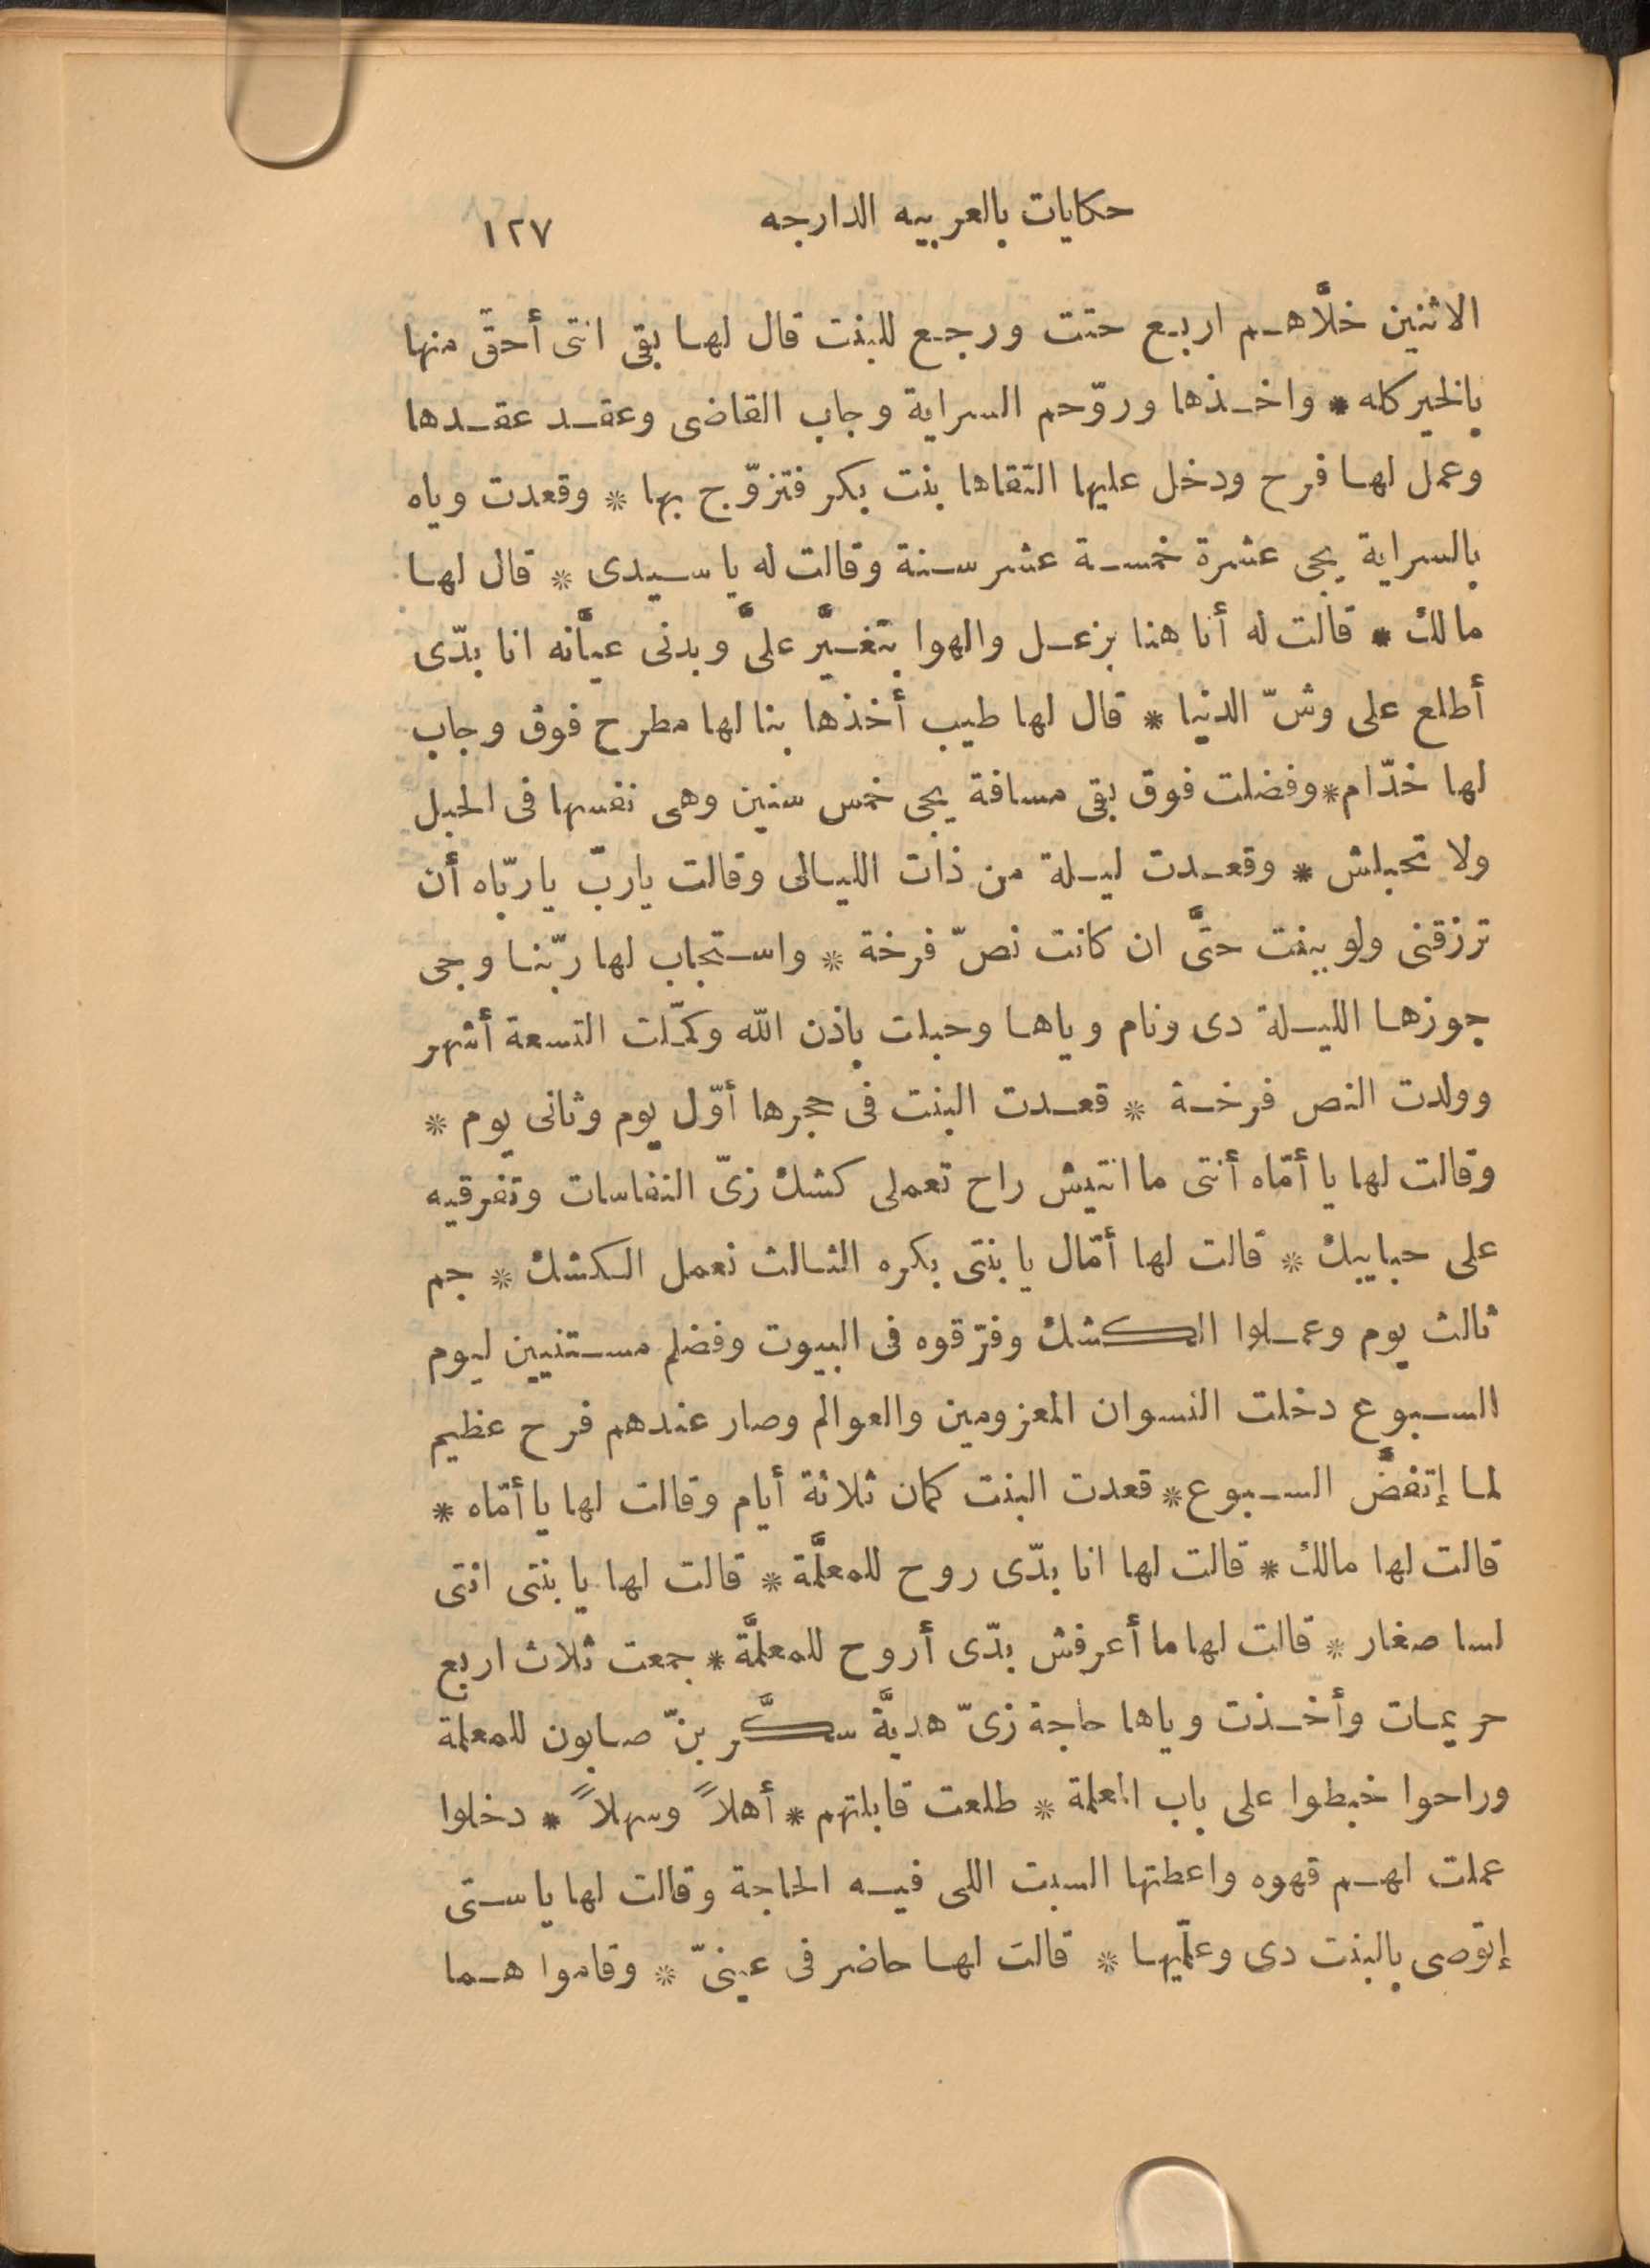 حكايات بالعربيه الدارجه ١٢٧
الاثنين خلَّاهم اربع حتت ورجع للبنت قال لها بقى انتى أحقّ منها
بالخير كله * واخذها وروّحم السراية وجاب القاضى وعقد عقدها
وعمل لها فرح ودخل عليها التقاها بنت بكر فتزوّج بها * وقعدت وياه
بالسراية يجى عشرة خمسة عشر سنة وقالت له يا سيدى * قال لها
مالك * قالت له أنا هنا بزعل والهوا بتغيَّر علىَّ وبدنى عيَّانه انا بدّى
أطلع على وشّ الدنيا * قال لها طيب أخذها بنا لها مطرح فوق وجاب
لها خدّام * وفضلت فوق بقى مسافة يجى خمس سنين وهى نفسها فى الحبل
ولا تحبلش * وقعدت ليلة من ذات الليالى وقالت يا ربّ يا ربّاه أن
ترزقنى ولو ببنت حتَّى ان كانت نصّ فرخة * واستجاب لها ربّنا وجى
جوزها الليلة دى ونام وياها وحبلت باذن الله وكمّلت التسعة أشهر
وولدت النص فرخة * قعدت البنت فى حجرها أوّل يوم وثانى يوم *
وقالت لها يا أمّاه أنتى ما انتيش راح تعملى كشك زىّ النفاسات وتفرقيه
على حبايبك * قالت لها أمّال يا بنتى بكره الثالث نعمل الكشك * جم
ثالث يوم وعملوا الكشك وفرّقوه فى البيوت وفضلم مستنيين ليوم
السبوع دخلت النسوان المعزومين والعوالم وصار عندهم فرح عظيم
لما إتفضَّ السبوع * قعدت البنت كمان ثلاثة أيام وقالت لها يا أمّاه *
قالت لها مالك * قالت لها انا بدّى روح للمعلَّمة * قالت لها يا بنتى انتى
لسا صغار * قالت لها ما أعرفش بدّى أروح للمعلَّمة * جمعت ثلاث اربع
حريمات وأخذت وياها حاجة زىّ هديَّة سكَّر بنّ صابون للمعلمة
وراحوا خبطوا على باب المعلمة * طلعت قابلتهم * أهلاً وسهلاً * دخلوا
عملت لهم قهوه واعطتها السبت اللى فيه الحاجة وقالت لها يا ستى
إتوصى بالبنت دى وعلّميها * قالت لها حاضر فى عينىّ * وقاموا هما